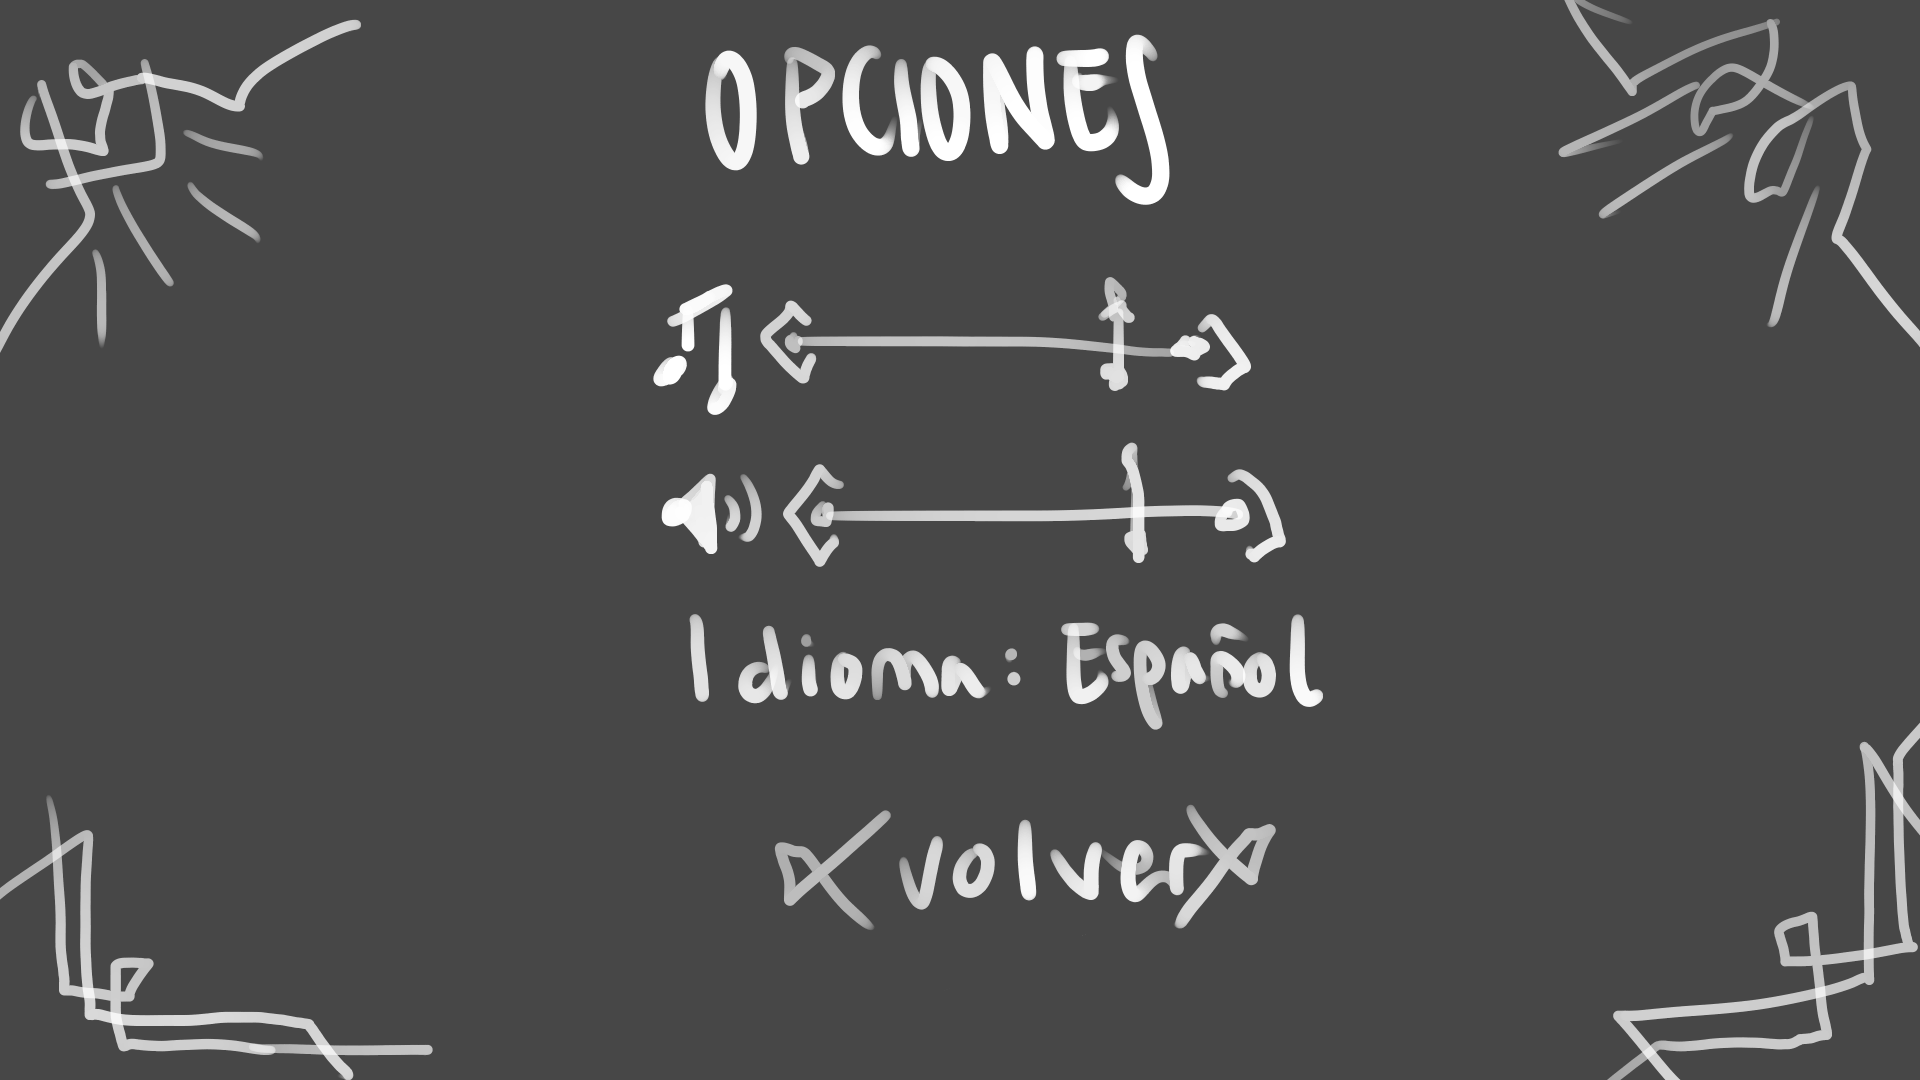 OPCIONES
Idioma: Español
volver